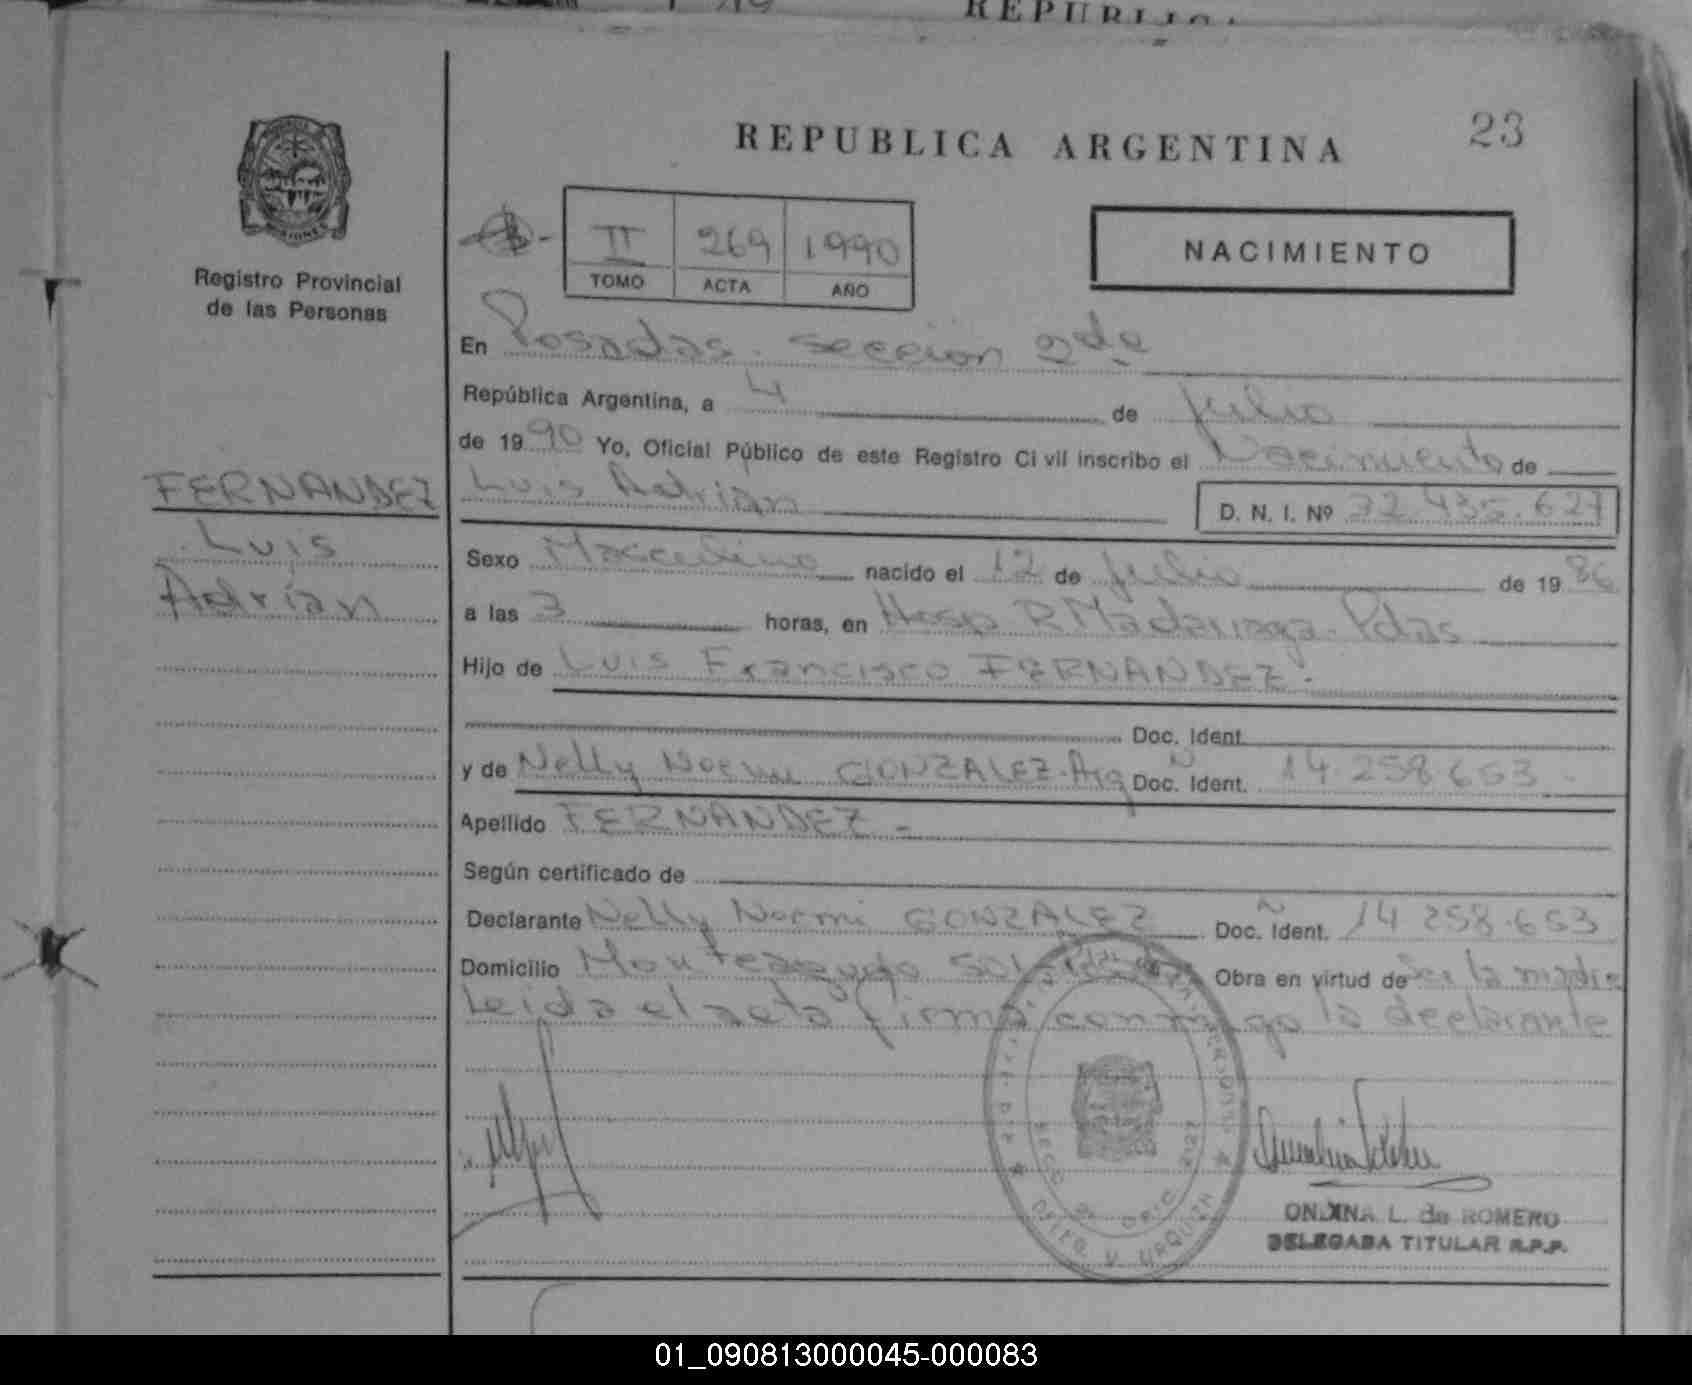 REPUBLICA ARGENTINA
23
Registro Provincial
de las Personas
II 269 1990
TOMO ACTA AÑO
NACIMIENTO
En Posadas. Seccion 2da
República Argentina, a 4 de Julio
de 1990 Yo, Oficial Público de este Registro Civil inscribo el Nacimiento de
FERNANDEZ
Luis
Adrián
Luis Adrián
D. N. I. Nº 32.435.627
Sexo Masculino nacido el 12 de Julio de 1986
a las 3 horas, en Hosp R Madariaga. Pdas
Hijo de Luis Francisco FERNANDEZ.
Doc. Ident.
y de Nelly Noemi GONZALEZ. Arg Doc. Ident. 14.258.653
Apellido FERNANDEZ -
Según certificado de
Declarante Nelly Noemi GONZALEZ Doc. Ident. 14 258.653
Domicilio Monteagudo Obra en virtud de Ser la madre
Leida el acta firma conmigo la declarante
DPTO. V. URQUIZA
ONDINA L. de ROMERO
DELEGADA TITULAR R.P.P.
01_090813000045-000083